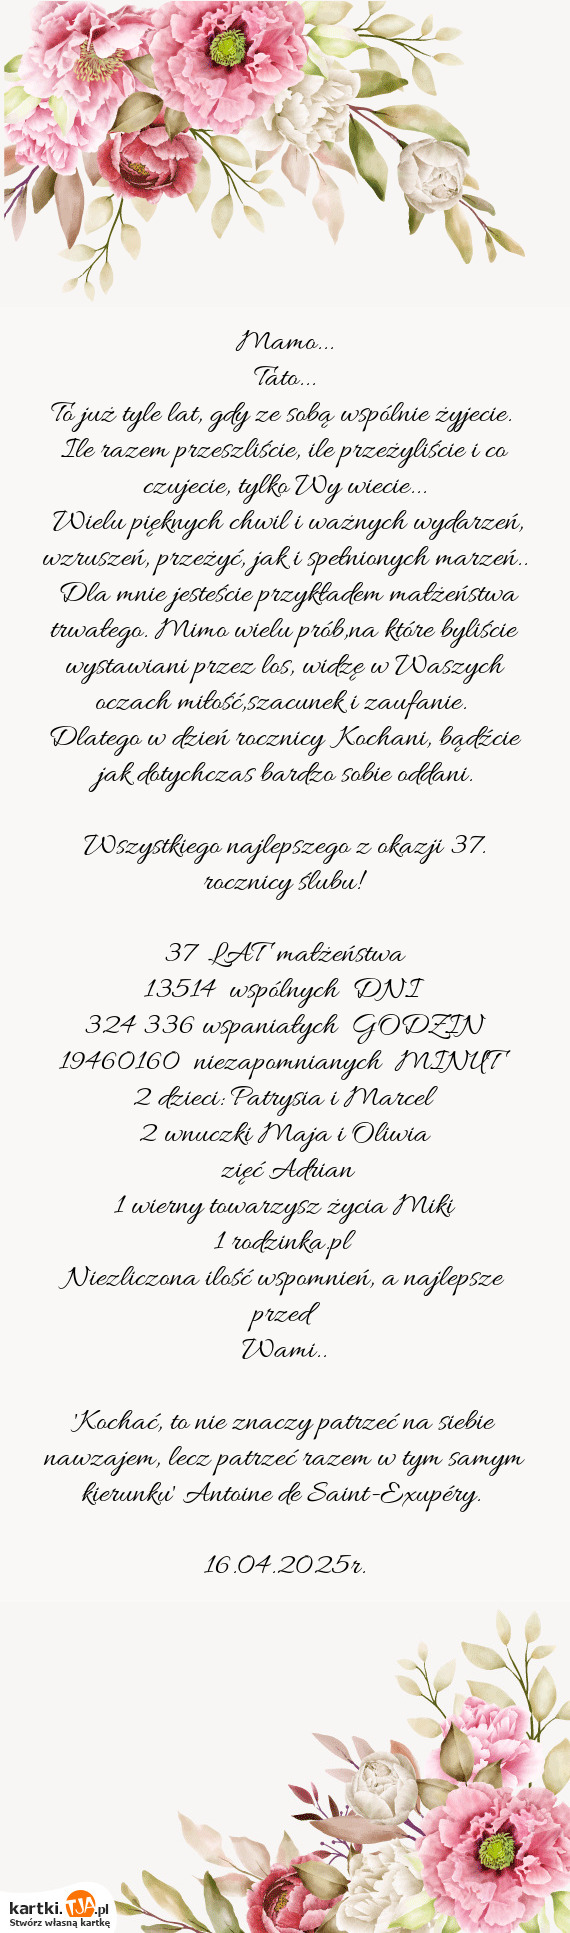 Mamo...
Tato...
To już tyle lat, gdy ze sobą wspólnie żyjecie.
Ile razem przeszliście, ile przeżyliście i co
czujecie, tylko Wy wiecie...
Wielu pięknych chwil i ważnych wydarzeń,
wzruszeń, przeżyć, jak i spełnionych marzeń..
Dla mnie jesteście przykładem małżeństwa
trwałego. Mimo wielu prób,na które byliście
wystawiani przez los, widzę w Waszych
oczach miłość,szacunek i zaufanie.
Dlatego w dzień rocznicy Kochani, bądźcie
jak dotychczas bardzo sobie oddani.
Wszystkiego najlepszego z okazji 37.
rocznicy ślubu!
37 LAT małżeństwa
13514 wspólnych DNI
324 336 wspaniałych GODZIN
19460160 niezapomnianych MINUT
2 dzieci: Patrysia i Marcel
2 wnuczki Maja i Oliwia
zięć Adrian
1 wierny towarzysz życia Miki
1 rodzinka.pl
Niezliczona ilość wspomnień, a najlepsze
przed
Wami..
'Kochać, to nie znaczy patrzeć na siebie
nawzajem, lecz patrzeć razem w tym samym
kierunku' Antoine de Saint-Exupéry.
16.04.2025r.
kartki.TJA.pl
Stwórz własną kartkę